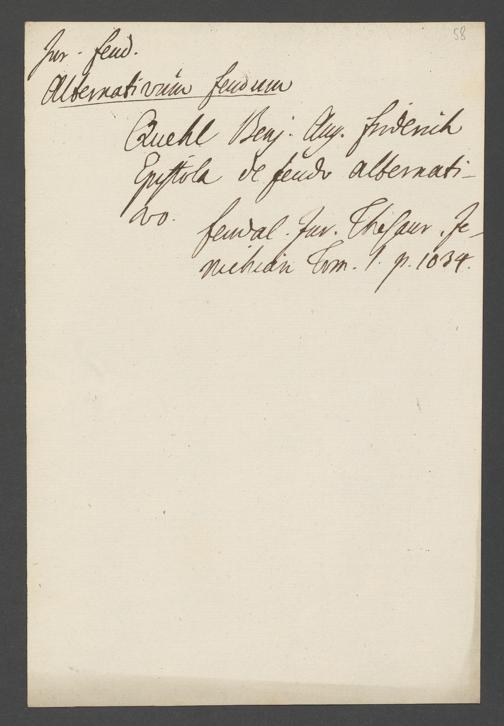 58
Jur. feud.
Alternativum feudum
Quehl Benj. Aug. Friderich
Epistola de feudo alternati-
vo.
feudal. Jur. Thesaur. Je-
nichian Tom. 1. p. 1034.